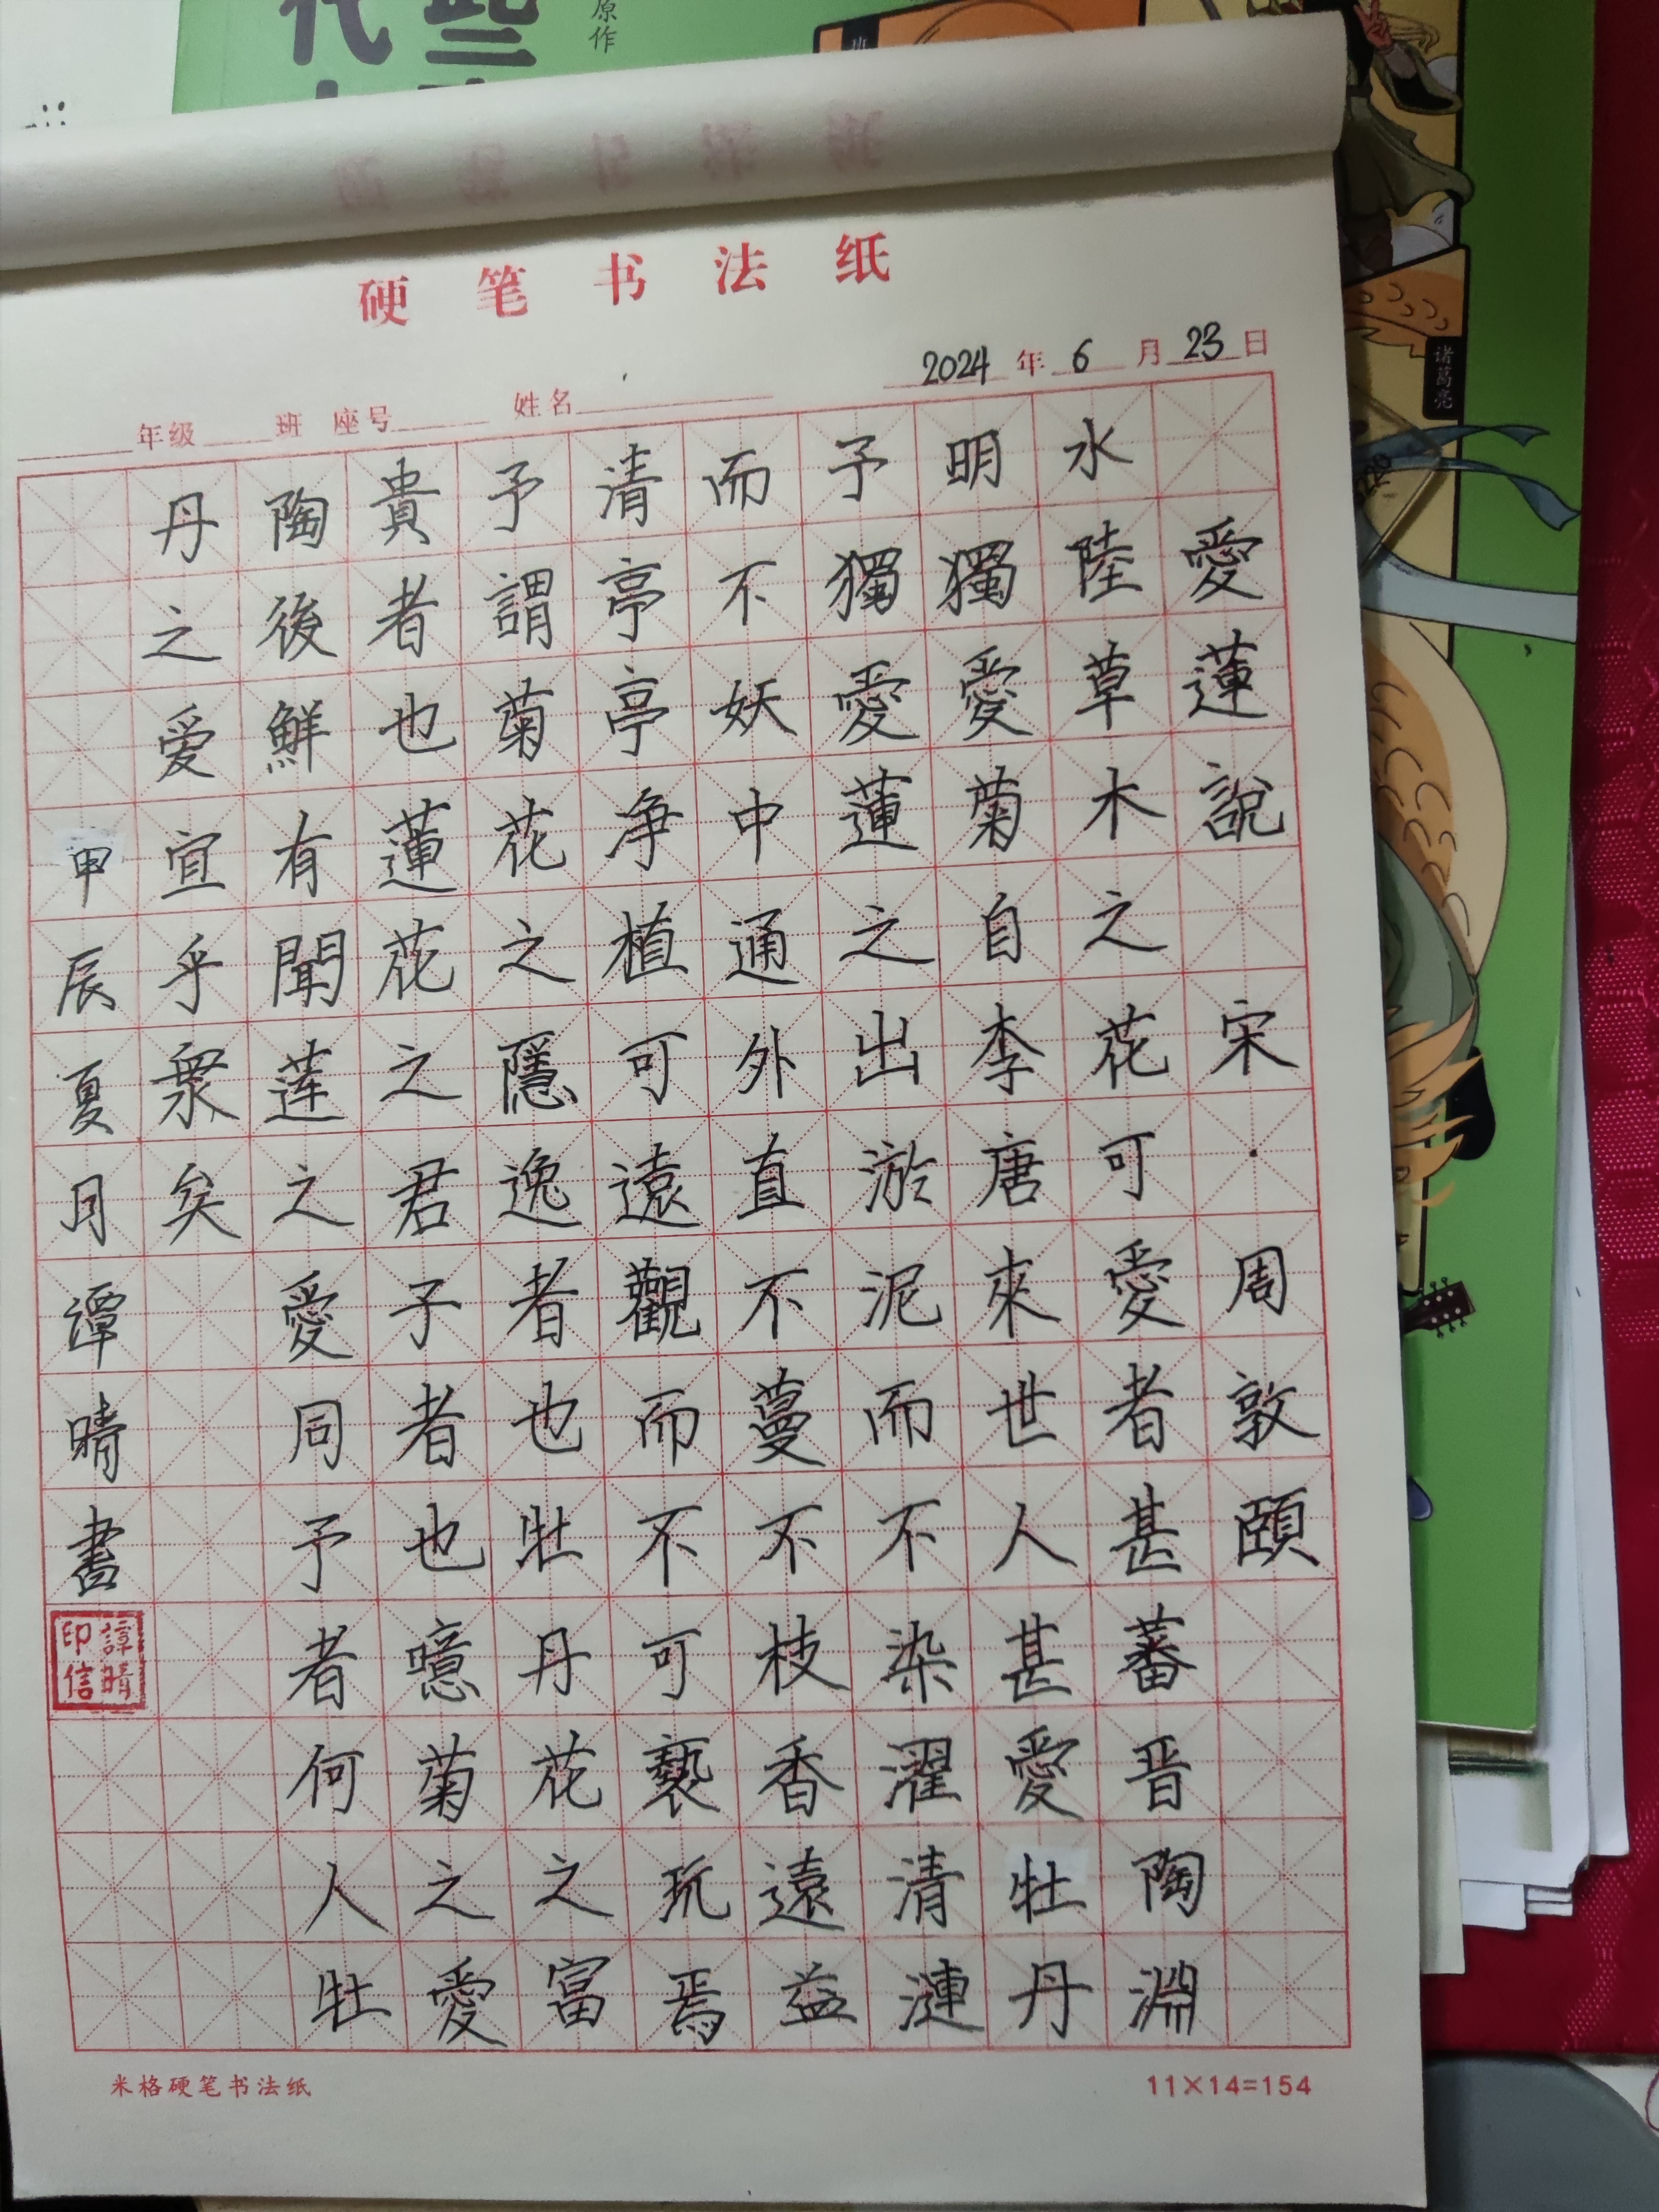 原作
诸葛亮
硬笔书法纸
2024年6月23日
年级 班 座号 姓名
愛蓮說 宋·周敦頤
水陸草木之花可愛者甚蕃晋陶淵
明獨愛菊自李唐來世人甚愛牡丹
予獨愛蓮之出淤泥而不染濯清漣
而不妖中通外直不蔓不枝香遠益
清亭亭净植可遠觀而不可褻玩焉
予謂菊花之隱逸者也牡丹花之富
貴者也蓮花之君子者也噫菊之愛
陶後鮮有聞莲之愛同予者何人牡
丹之爱宜乎衆矣
甲辰夏月谭晴書
譚晴印信
米格硬笔书法纸
11×14=154